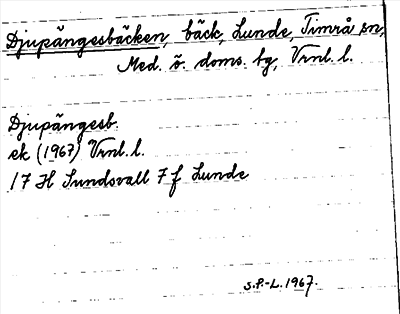 Djupängesbäcken, bäck, Lunde, Timrå sn,
Med. ö. doms. bg, Vrnl. l.
Djupängesb.
ek (1967) Vrnl. l.
17 H Sundsvall 7 f Lunde
S.P.-L. 1967.